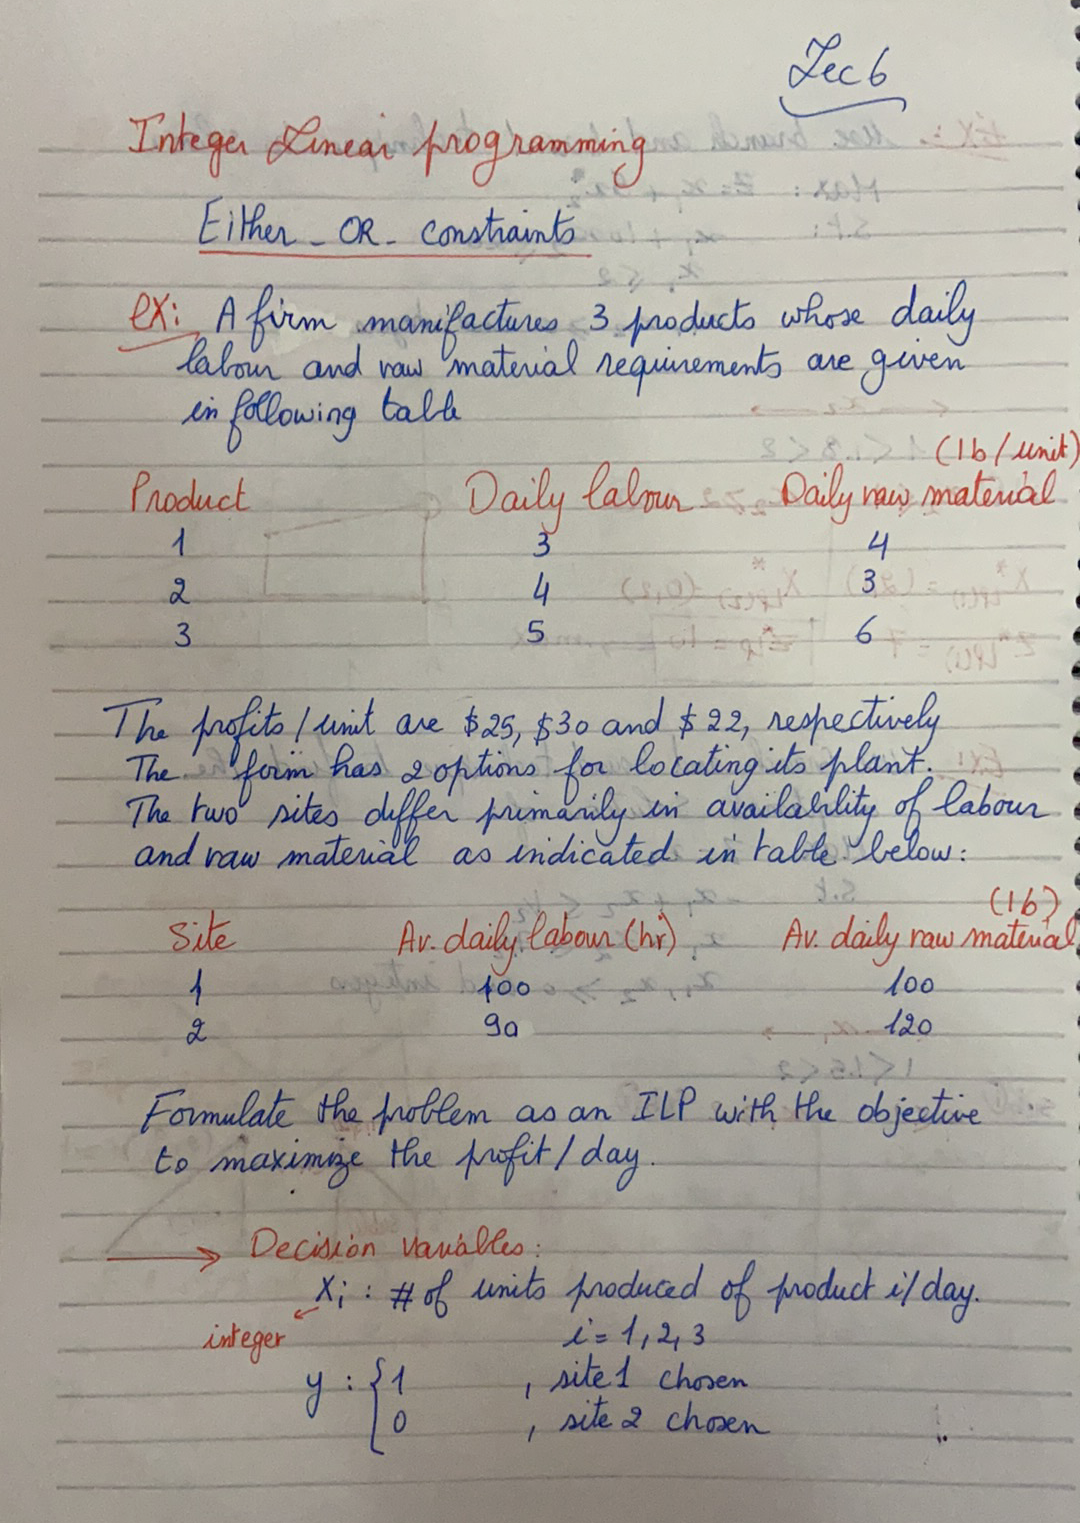 Lec 6
Integer Linear programming
Either - OR - constraints
ex: A firm manifactures 3 products whose daily
labour and raw material requirements are given
in following table
(lb/unit)
Product Daily labour Daily raw material
1 3 4
2 4 3
3 5 6
The profits / unit are $25, $30 and $22, respectively
The firm has 2 options for locating its plant.
The two sites differ primarily in availability of labour
and raw material as indicated in table below:
(lb)
Site Av. daily labour (hr) Av. daily raw material
1 100 100
2 90 120
Formulate the problem as an ILP with the objective
to maximize the profit / day.
→ Decision variables:
Xi : # of units produced of product i/day.
integer i = 1, 2, 3
y : { 1 , site 1 chosen
0 , site 2 chosen